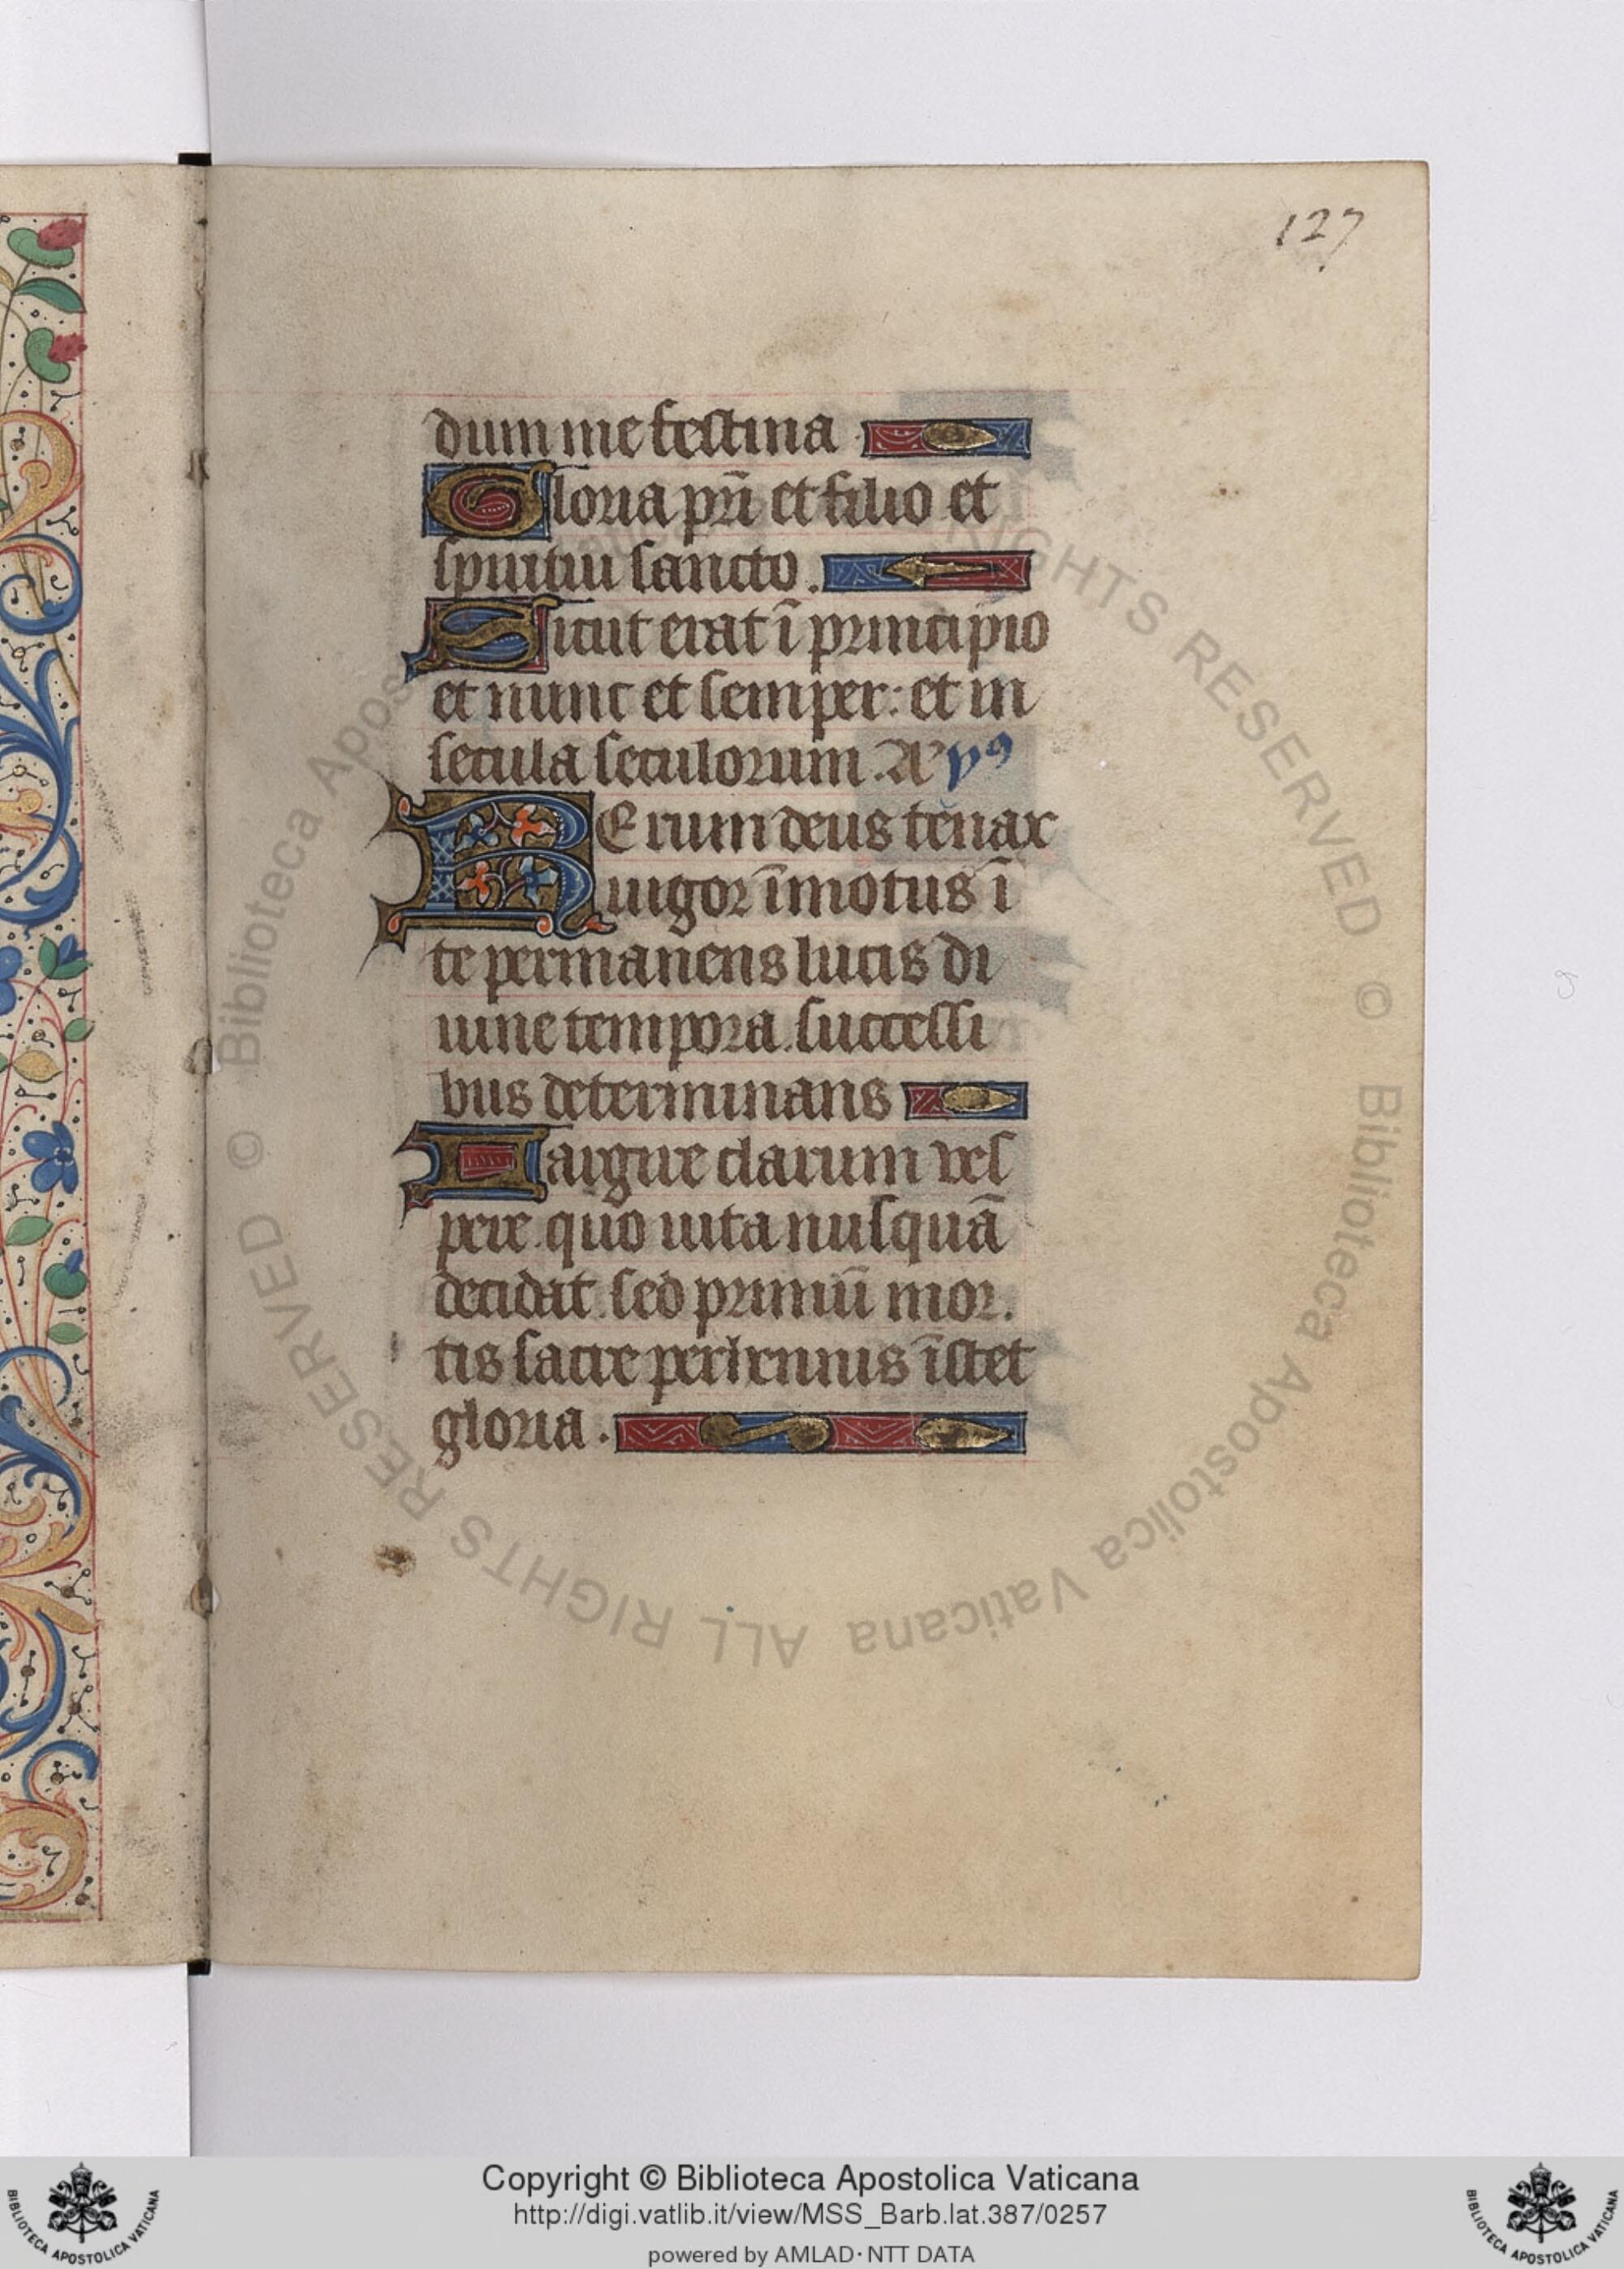 127
dum me festina
Gloria pri̅ et filio et
spiritui sancto.
Sicut erat i̅ principio
et nunc et semper: et in
secula seculorum. Ae' yꝰ
Rerum deus tenax
uigor i̅motus i̅
te permanens lucis di
uine tempora. successi
bus determinans
Largire clarum ves
pere. quo uita nusqua̅
decidat. sed primiu̅ mor.
tis sacre perhennis i̅stet
gloria.
© Biblioteca Apostolica Vaticana ALL RIGHTS RESERVED © Biblioteca Apostolica Vaticana ALL RIGHTS RESERVED
Copyright © Biblioteca Apostolica Vaticana
http://digi.vatlib.it/view/MSS_Barb.lat.387/0257
powered by AMLAD·NTT DATA
BIBLIOTECA APOSTOLICA VATICANA
BIBLIOTECA APOSTOLICA VATICANA